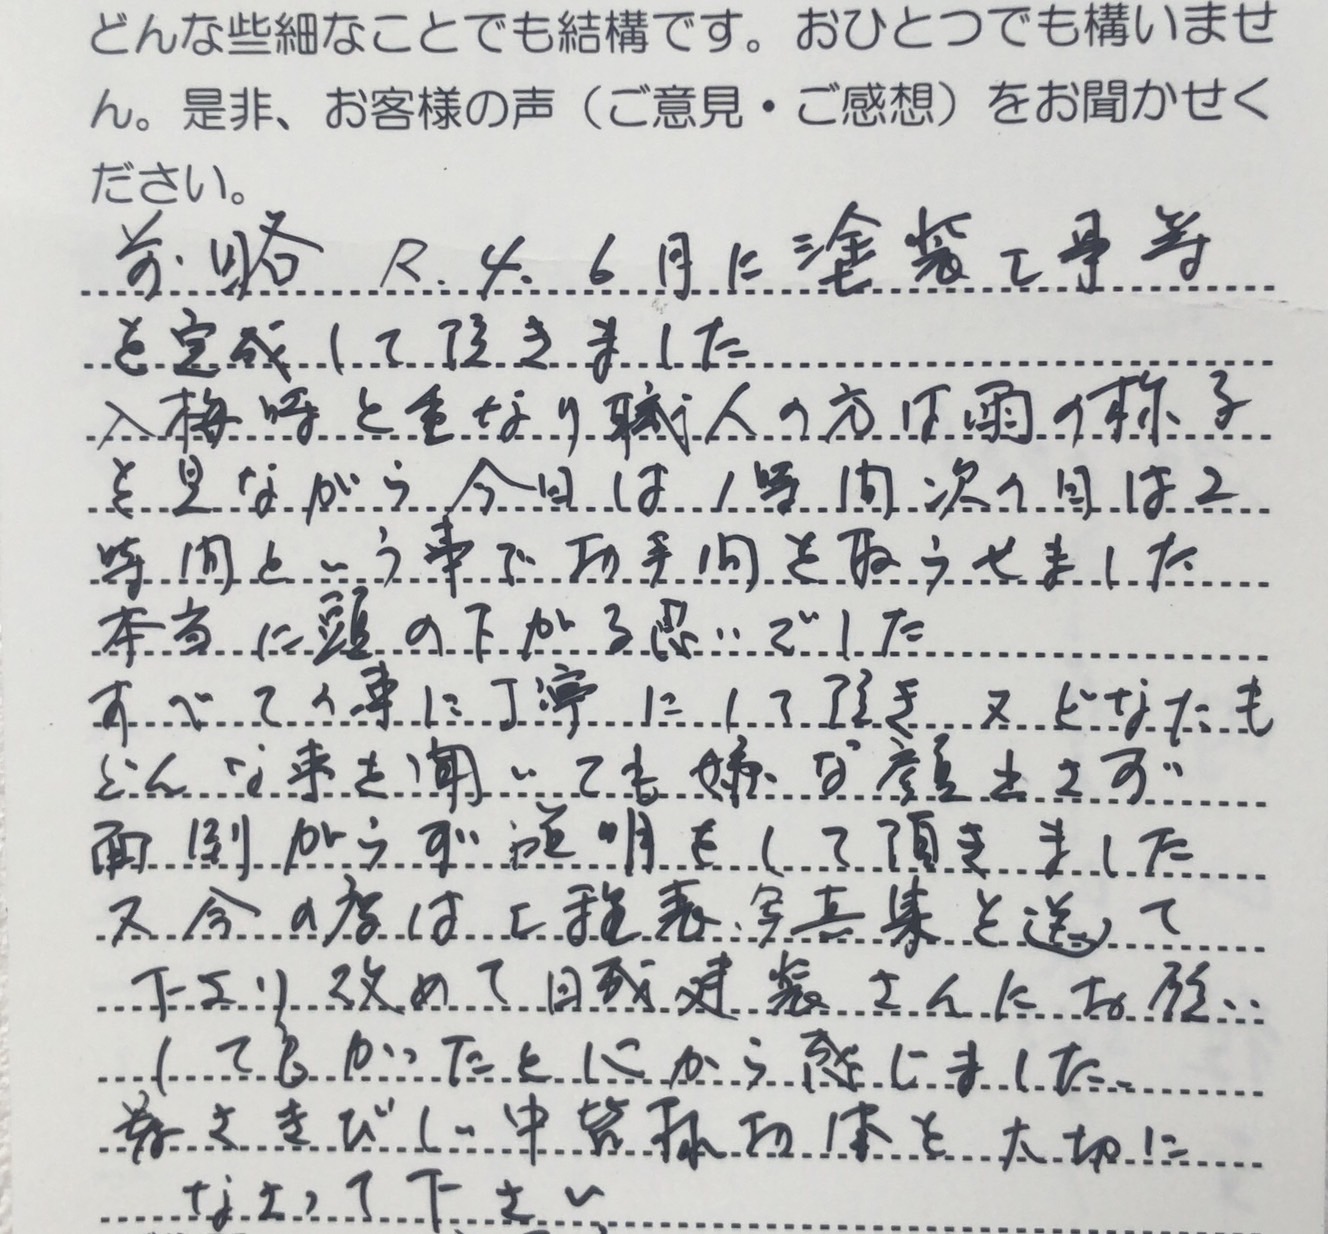 どんな些細なことでも結構です。おひとつでも構いませ
ん。是非、お客様の声（ご意見・ご感想）をお聞かせく
ださい。
前略 R.4.6月に塗装工事等
を完成して頂きました
入梅時と重なり職人の方は雨の様子
を見ながら今日は1時間次の日は2
時間という事でお手間を取らせました
本当に頭の下がる思いでした
すべての事に丁寧にして頂き 又どなたも
どんな事を聞いても嫌な顔もさず
面倒がらず説明をして頂きました
又今の度は工程表、写真集を送って
下さり改めて日成建装さんにお願い
して良かったと心から感じました、
暑さきびしい中皆様お体を大切に
なさって下さい、